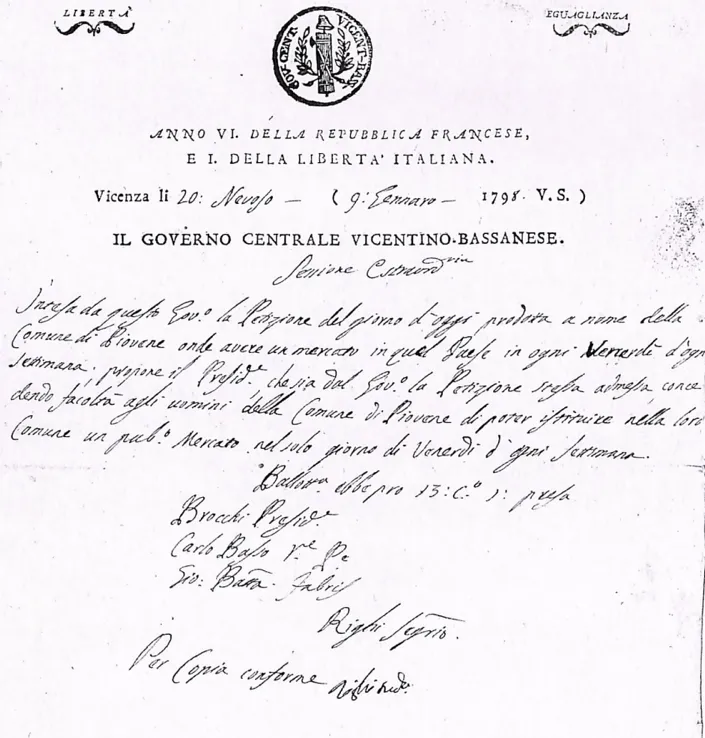 LIBERTÀ
EGUAGLIANZA
GOV. CENT. VICENT-BAS.
ANNO VI. DELLA REPUBBLICA FRANCESE,
E I. DELLA LIBERTA' ITALIANA.
Vicenza li 20: Nevoso — ( 9: Gennaro — 1798. V.S. )
IL GOVERNO CENTRALE VICENTINO-BASSANESE.
Sessione Estraord.ria
Intesa da questo Gov.o la Petizione del giorno d'oggi prodotta a nome della
Comune di Piovene onde avere un mercato in quel Paese in ogni Venerdì d'ogni
Settimana. propone il Presid.e, che sia dal Gov.o la Petizione stessa admessa conce-
dendo facoltà agli uomini della Comune di Piovene di poter istituire nella loro
Comune un pub.o Mercato nel solo giorno di Venerdì d'ogni Settimana.
Ballot.a ebbe pro 13: C.o 1: presa
Brocchi Presid.e
Carlo Basso
Gio: Batta. Fabris
Righi Segrio.
Per Copia conforme